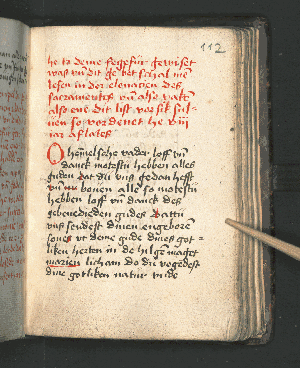 112
he to deme fegefür gewiset
waß vñ dit ge bet schal me
lesen in der eleuacien deß
sacramentes vñ alse vakē
alse ene dit list vor sik sul-
uen so vordenet he viij
iar aflates
O hemelsche vader loff vñ
danck motestu hebben alles
guden dat du vns gedan hefft
vñ bouen alle so motestu
hebben loff vñ danck des
gebenedieden gudes dattu
vns sendest dinen engeboren
sones vt deme gude dines got-
liken herten in de hilge maget
marien licham do du vogedest
dine gotliken natur vnde